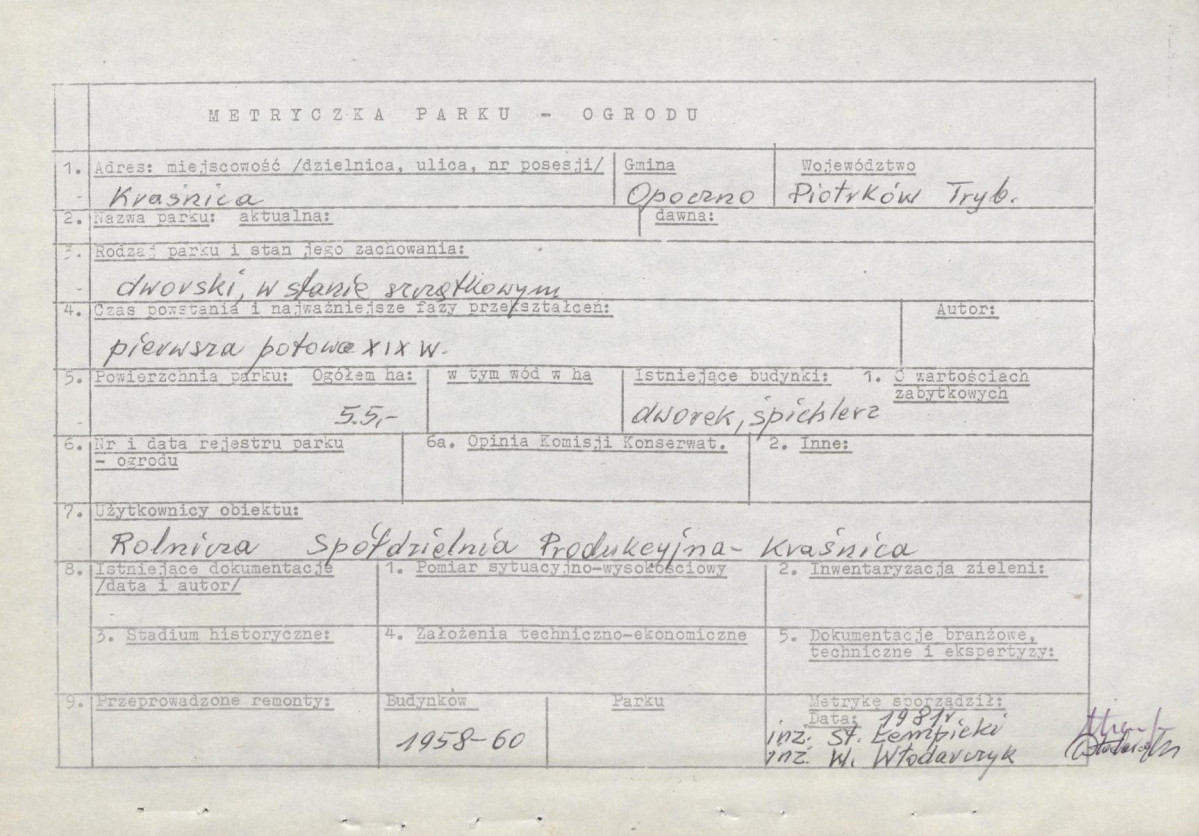 METRYCZKA PARKU - OGRODU
1. Adres: miejscowość /dzielnica, ulica, nr posesji/ Gmina Województwo
Kraśnica Opoczno Piotrków Tryb.
2. Nazwa parku: aktualna: dawna:
3. Rodzaj parku i stan jego zachowania:
dworski, w stanie szczątkowym
4. Czas powstania i najważniejsze fazy przekształceń: Autor:
pierwsza połowa XIX w.
5. Powierzchnia parku: Ogółem ha: w tym wód w ha Istniejące budynki: 1. O wartościach
zabytkowych
5.5,- dworek, spichlerz
6. Nr i data rejestru parku 6a. Opinia Komisji Konserwat. 2. Inne:
- ogrodu
7. Użytkownicy obiektu:
Rolnicza Spółdzielnia Produkcyjna - Kraśnica
8. Istniejące dokumentacje 1. Pomiar sytuacyjno-wysokościowy 2. Inwentaryzacja zieleni:
/data i autor/
3. Stadium historyczne: 4. Założenia techniczno-ekonomiczne 5. Dokumentacje branżowe,
techniczne i ekspertyzy:
9. Przeprowadzone remonty: Budynków Parku Metrykę sporządził:
Data: 1981r
1958-60 inż. St. Łempicki
inż. W. Włodarczyk